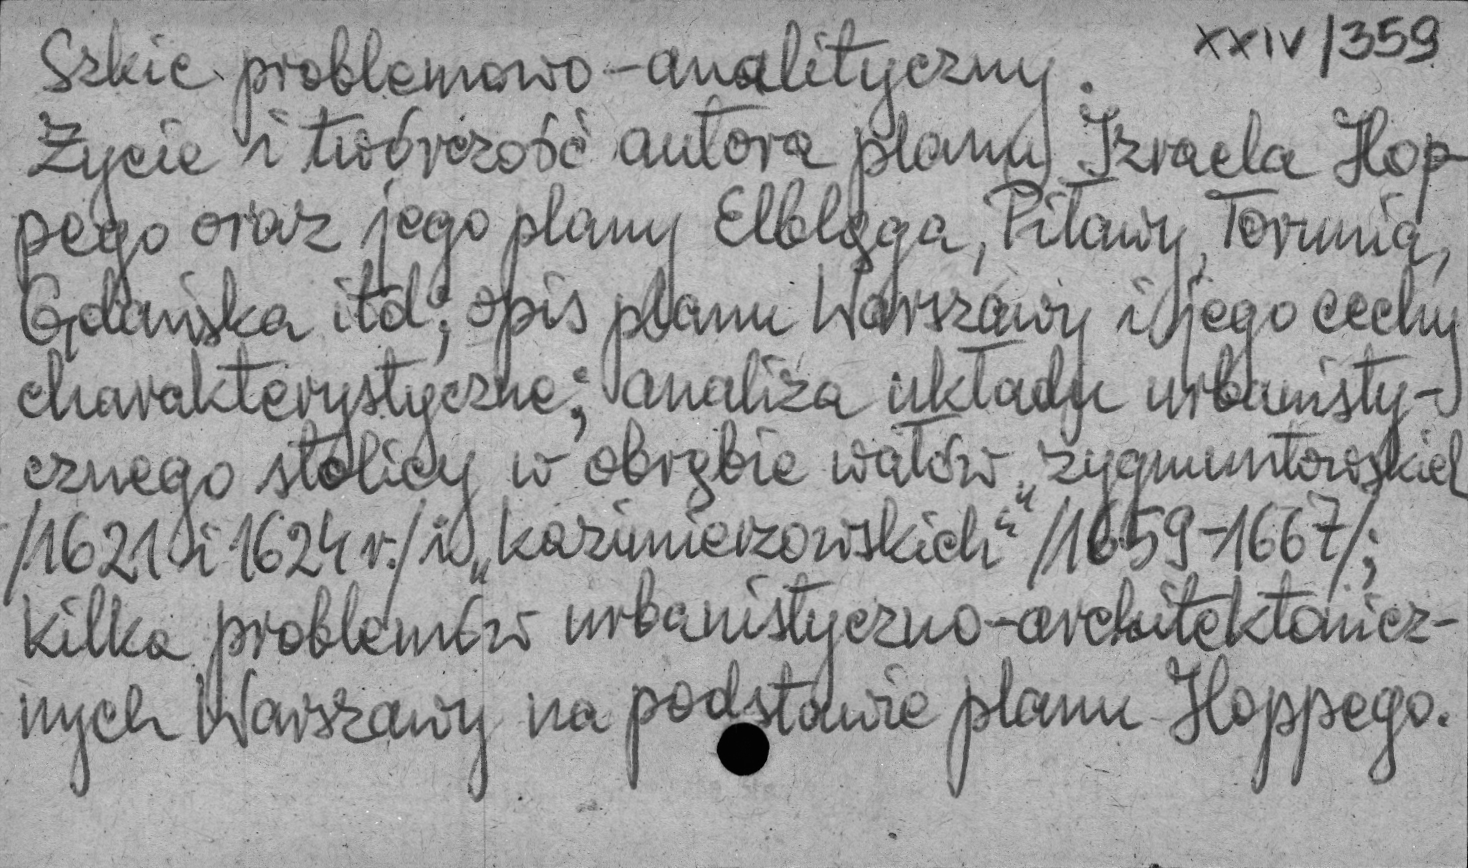 XXIV/359
Szkic problemowo-analityczny.
Życie i twórczość autora planu Izraela Hop-
pego oraz jego plany Elbląga, Piławy, Torunia,
Gdańska itd; opis planu Warszawy i jego cechy
charakterystyczne; analiza układu urbanisty-
cznego stolicy w obrębie wałów „zygmuntowskich"
/1621 i 1624 r./ i „kazimierzowskich" /1659-1667/;
kilka problemów urbanistyczno-architektonicz-
nych Warszawy na podstawie planu Hoppego.